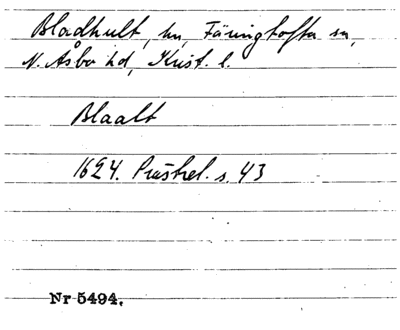 Bladhult, hn, Färingtofta sn,
N. Åsbo hd, Krist. l.
Blaalt
1624. Präстrel. s. 43
Nr 5494.